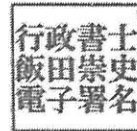 行政書士
飯田崇史
電子署名